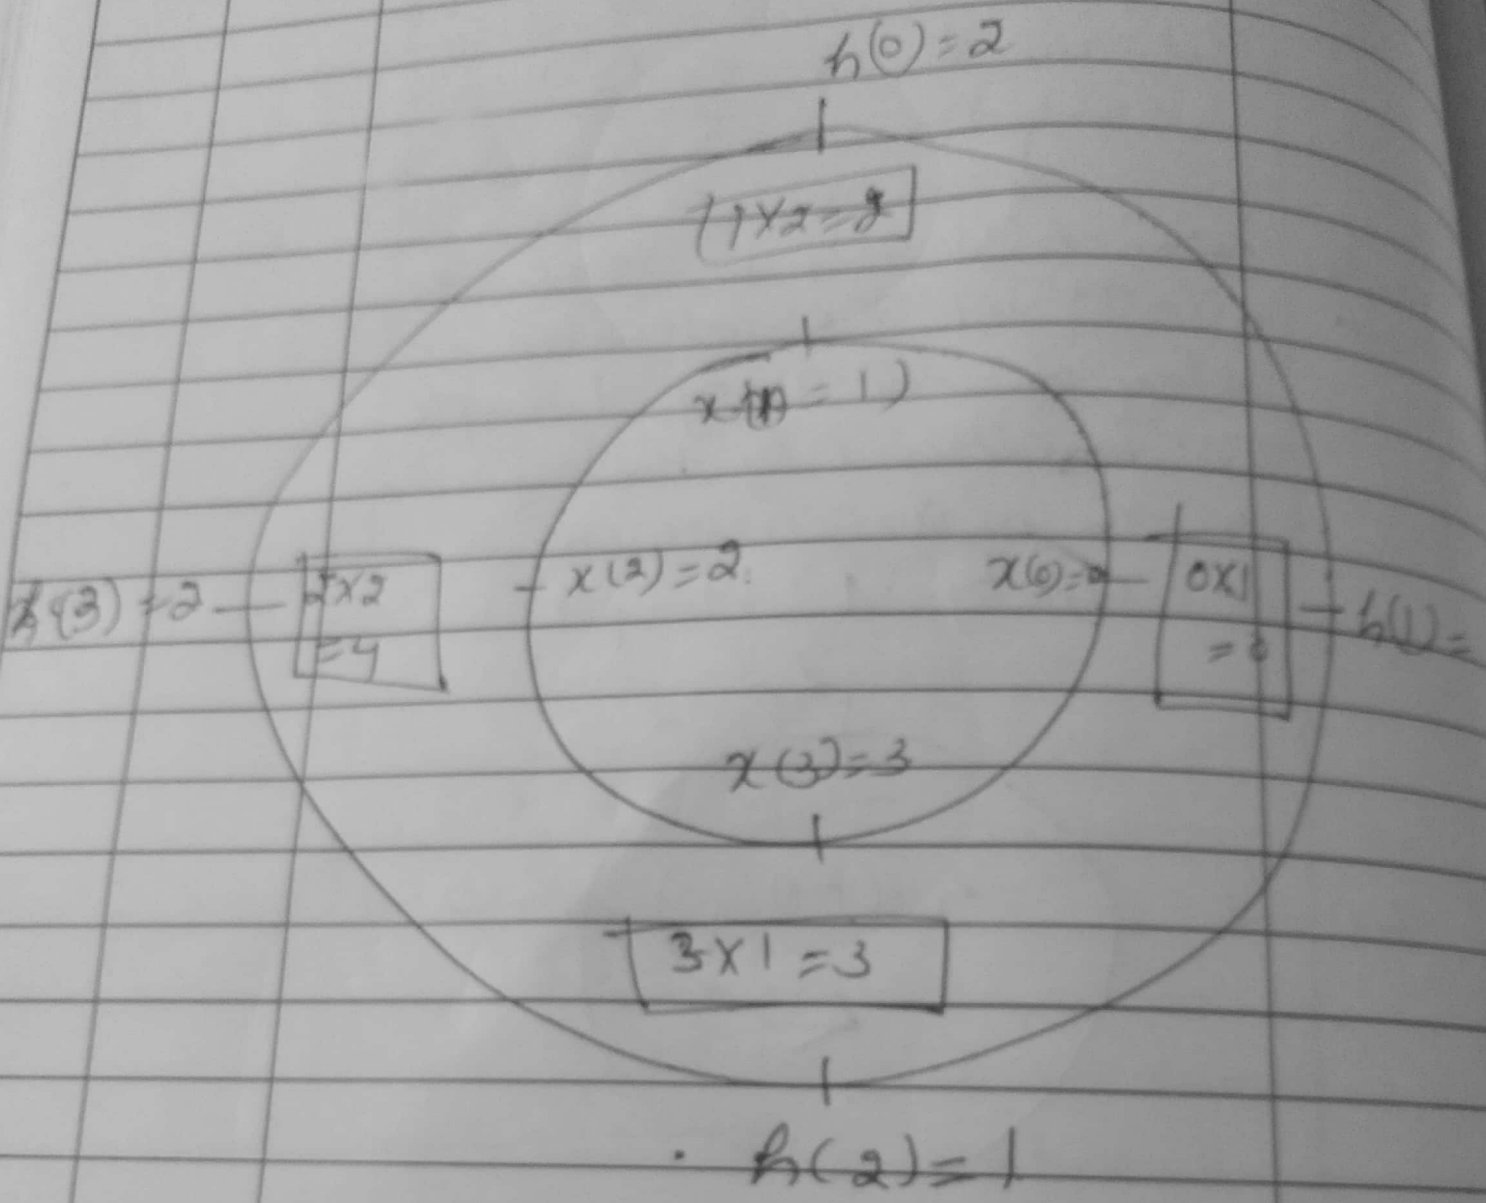 h(0) = 2
1×2=2
= 1)
h(3) = 2
2×2
=4
x(2) = 2
x(0)=
0×1
= 0
h(1) =
x(3)=3
3×1 = 3
h(2) = 1